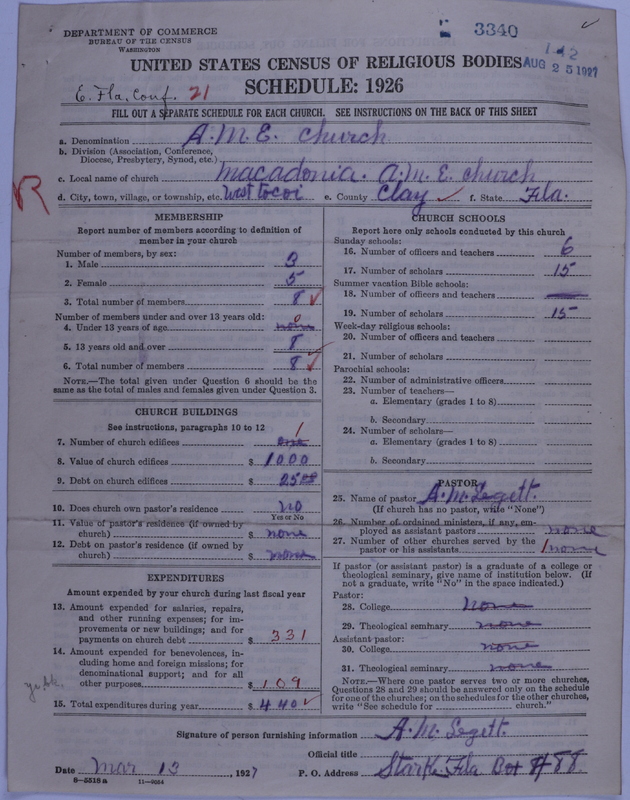 DEPARTMENT OF COMMERCE
BUREAU OF THE CENSUS
WASHINGTON
3340
UNITED STATES CENSUS OF RELIGIOUS BODIES
AUG 25 1927
SCHEDULE: 1926
E. Fla. Conf. 21
FILL OUT A SEPARATE SCHEDULE FOR EACH CHURCH. SEE INSTRUCTIONS ON THE BACK OF THIS SHEET
a. Denomination A.M.E. church
b. Division (Association, Conference, Diocese, Presbytery, Synod, etc.)
c. Local name of church macadonia. A.M.E. church
d. City, town, village, or township, etc. West Tocoi e. County Clay f. State Fla.
R
MEMBERSHIP
Report number of members according to definition of member in your church
Number of members, by sex:
1. Male 3
2. Female 5
3. Total number of members 8
Number of members under and over 13 years old:
4. Under 13 years of age none 0
5. 13 years old and over 8
6. Total number of members 8
NOTE.—The total given under Question 6 should be the same as the total of males and females given under Question 3.
CHURCH BUILDINGS
See instructions, paragraphs 10 to 12
7. Number of church edifices one 1
8. Value of church edifices $ 1000
9. Debt on church edifices $
10. Does church own pastor's residence no
Yes or No
11. Value of pastor's residence (if owned by church) $ none
12. Debt on pastor's residence (if owned by church) $ none
EXPENDITURES
Amount expended by your church during last fiscal year
13. Amount expended for salaries, repairs, and other running expenses; for improvements or new buildings; and for payments on church debt $ 331
14. Amount expended for benevolences, including home and foreign missions; for denominational support; and for all other purposes $ 109
15. Total expenditures during year $ 440
CHURCH SCHOOLS
Report here only schools conducted by this church
Sunday schools:
16. Number of officers and teachers 6
17. Number of scholars 15
Summer vacation Bible schools:
18. Number of officers and teachers
19. Number of scholars 15
Week-day religious schools:
20. Number of officers and teachers
21. Number of scholars
Parochial schools:
22. Number of administrative officers
23. Number of teachers—
a. Elementary (grades 1 to 8)
b. Secondary
24. Number of scholars—
a. Elementary (grades 1 to 8)
b. Secondary
PASTOR
25. Name of pastor A.M. Legett.
(If church has no pastor, write "None")
26. Number of ordained ministers, if any, employed as assistant pastors none
27. Number of other churches served by the pastor or his assistants 1 none
If pastor (or assistant pastor) is a graduate of a college or theological seminary, give name of institution below. (If not a graduate, write "No" in the space indicated.)
Pastor:
28. College none
29. Theological seminary none
Assistant pastor:
30. College none
31. Theological seminary none
NOTE.—Where one pastor serves two or more churches, Questions 28 and 29 should be answered only on the schedule for one of the churches; on the schedules for the other churches, write "See schedule for church."
Signature of person furnishing information A.M. Legett.
Official title
Date Mar 13, 1927 P. O. Address Starke Fla Box #88
8—5518a 11—9064